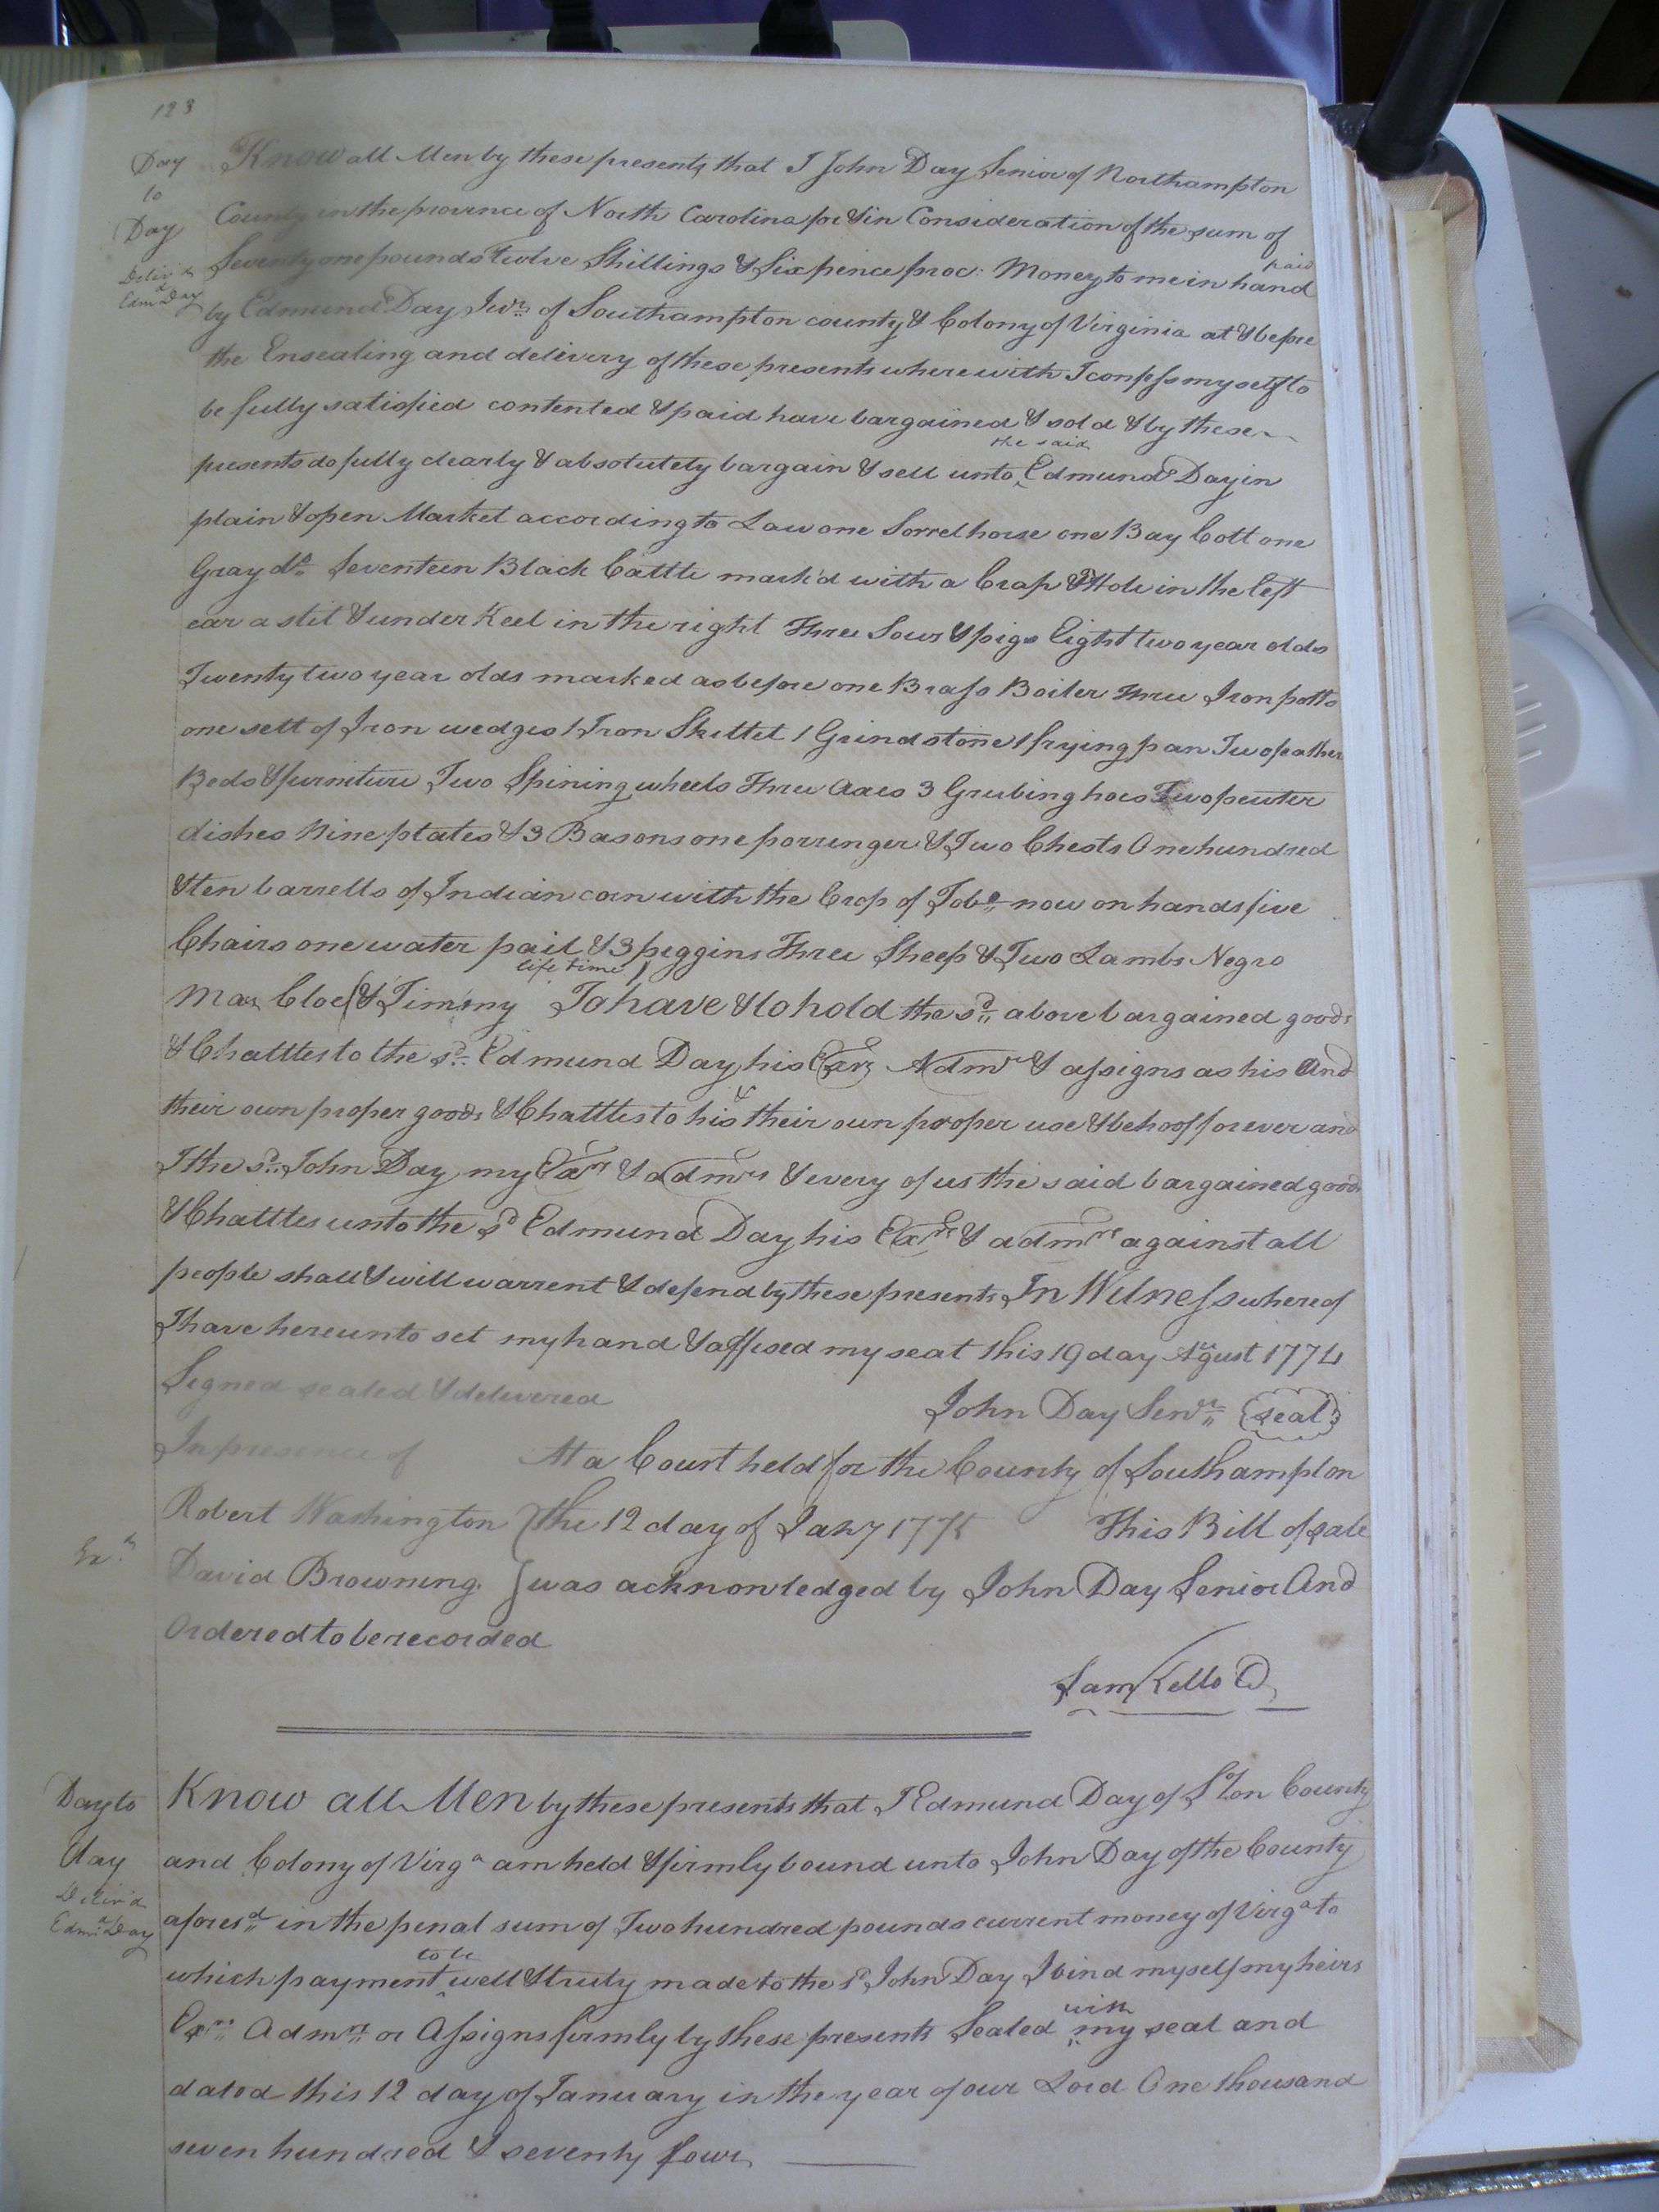 123
Day
to
Day
Deliv'd
Edmd Day
Know all Men by these presents that I John Day Senior of Northampton
County in the province of North Carolina for & in Consideration of the sum of
Seventy one pounds Twelve Shillings & Six pence proc: Money to me in hand paid
by Edmund Day Junr of Southampton county & Colony of Virginia at & before
the Ensealing and delivery of these presents where with I confess my self to
be fully satisfied contented & paid have bargained & sold & by these
presents do fully clearly & absolutely bargain & sell unto the said Edmund Day in
plain & open Market according to Law one Sorrel horse one Bay Colt one
Gray do Seventeen Black Cattle mark'd with a Crap & Hole in the left
ear a slit & under Keel in the right Three Sows & pigs Eight two year olds
Twenty two year olds marked as before one Brass Boiler Three Iron potts
one sett of Iron wedges 1 Iron Skillet 1 Grindstone 1 frying pan Two feather
Beds & furniture Two Spining wheels Three Axes 3 Grubing hoes Two pewter
dishes Nine plates & 3 Basons one porrunger & Two Chests One hundred
& ten barrells of Indian corn with the Crop of Tobo now on hands five
Chairs one water pail & 3 piggins Three Sheep & Two Lambs Negro
Man Cloe (& Timmy life time) To have & to hold the sd above bargained goods
& Chattles to the sd Edmund Day his Exrs Admrs & assigns as his And
their own proper goods & Chattles to his & their own proper use & behoof forever and
I the sd John Day my Exrs & admrs & every of us the said bargained goods
& Chattles unto the sd Edmund Day his Exrs & admrs against all
people shall & will warrent & defend by these presents In Witness whereof
I have hereunto set my hand & affixed my seal this 19 day August 1774
Signed sealed & delivered
John Day Senr (seal)
In presence of
At a Court held for the County of Southampton
Robert Washington } the 12 day of Jany 1775 This Bill of sale
Exd
David Browning } was acknowledged by John Day Senior And
Ordered to be recorded
Sam Kello C
Day to
day
Deliv'd
Edmd Day
Know all Men by these presents that I Edmund Day of Soton County
and Colony of Virga am held & firmly bound unto John Day of the County
aforesd in the penal sum of Two hundred pounds current money of Virga to
which payment to be well & truly made to the sd John Day I bind myself my heirs
Exrs Admrs or Assigns firmly by these presents Sealed with my seal and
dated this 12 day of January in the year of our Lord One thousand
seven hundred & seventy four